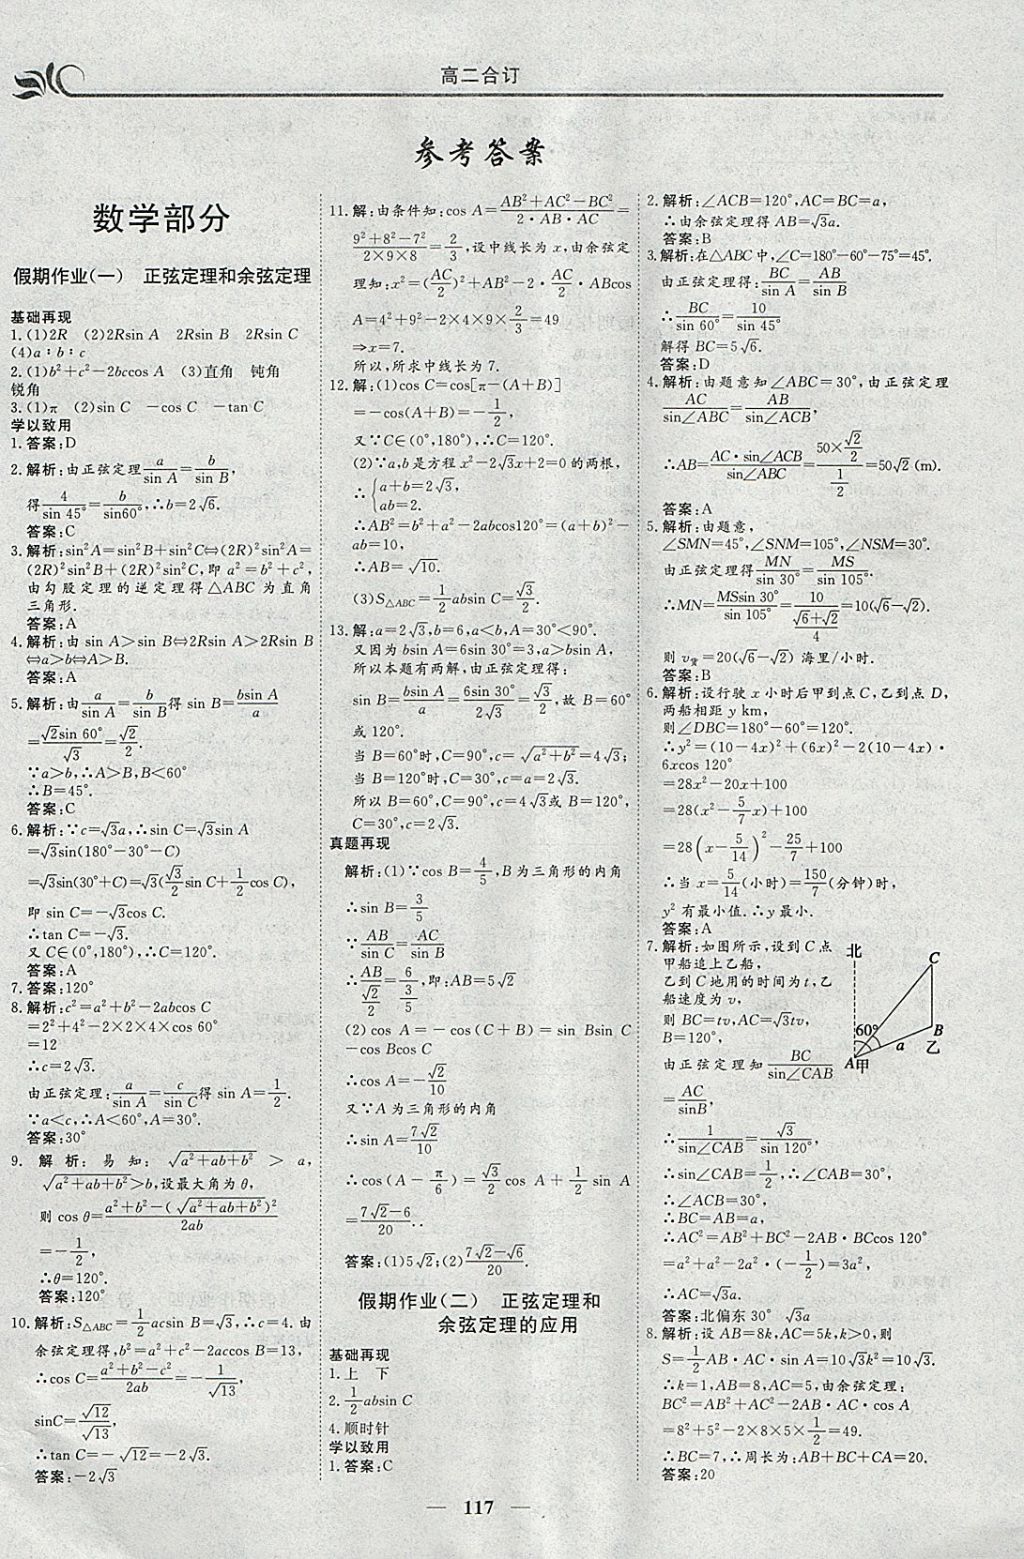 高二合订
参考答案
数学部分
假期作业(一) 正弦定理和余弦定理
基础再现
1.(1)2R (2)2Rsin A 2Rsin B 2Rsin C
(4)a∶b∶c
2.(1)b²+c²-2bccosA (3)直角 钝角
锐角
3.(1)π (2)sin C -cos C -tan C
学以致用
1.答案:D
2.解析:由正弦定理a/sin A=b/sin B,
得4/sin 45°=b/sin60°,∴b=2√6.
答案:C
3.解析:sin²A=sin²B+sin²C⇔(2R)²sin²A=
(2R)²sin²B+(2R)²sin²C,即a²=b²+c²,
由勾股定理的逆定理得△ABC为直角
三角形.
答案:A
4.解析:由 sin A>sin B⇔2Rsin A>2Rsin B
⇔a>b⇔A>B.
答案:A
5.解析:由a/sin A=b/sin B得 sin B=bsin A/a
=√2sin 60°/√3=√2/2.
∵a>b,∴A>B,B<60°
∴B=45°.
答案:C
6.解析:∵c=√3a,∴sin C=√3sin A
=√3sin(180°-30°-C)
=√3sin(30°+C)=√3(√3/2sin C+1/2cos C),
即 sin C=-√3cos C.
∴tan C=-√3.
又 C∈(0°,180°),∴C=120°.
答案:A
7.答案:120°
8.解析:c²=a²+b²-2abcos C
=2²+4²-2×2×4×cos 60°
=12
∴c=2√3.
由正弦定理:a/sin A=c/sin C得 sin A=1/2.
∵a<c,∴A<60°,A=30°.
答案:30°
9. 解析:易知:√(a²+ab+b²) > a,
√(a²+ab+b²)>b,设最大角为θ,
则 cos θ=(a²+b²-(√(a²+ab+b²))²)/2ab
=-1/2,
∴θ=120°.
答案:120°
10.解析:S△ABC=1/2acsin B=√3,∴c=4. 由
余弦定理得,b²=a²+c²-2accos B=13,
∴cos C=(a²+b²-c²)/2ab=-1/√13,
sinC=√12/√13,
∴tan C=-√12=-2√3.
答案:-2√3
11.解:由条件知:cos A=(AB²+AC²-BC²)/(2·AB·AC)=
(9²+8²-7²)/(2×9×8)=2/3,设中线长为x,由余弦定
理知:x²=(AC/2)²+AB²-2·AC/2·ABcos
A=4²+9²-2×4×9×2/3=49
⇒x=7.
所以,所求中线长为7.
12.解:(1)cos C=cos[π-(A+B)]
=-cos(A+B)=-1/2,
又∵C∈(0°,180°),∴C=120°.
(2)∵a,b是方程x²-2√3x+2=0的两根,
∴{a+b=2√3,
ab=2.
∴AB²=b²+a²-2abcos120°=(a+b)²-
ab=10,
∴AB=√10.
(3)S△ABC=1/2absin C=√3/2.
13.解:a=2√3,b=6,a<b,A=30°<90°.
又因为bsin A=6sin 30°=3,a>bsin A,
所以本题有两解,由正弦定理得:
sin B=bsin A/a=6sin 30°/2√3=√3/2,故 B=60°
或 120°.
当 B=60°时,C=90°,c=√(a²+b²)=4√3;
当 B=120°时,C=30°,c=a=2√3.
所以 B=60°,C=90°,c=4√3或 B=120°,
C=30°,c=2√3.
真题再现
解析:(1)∵cos B=4/5,B为三角形的内角
∴sin B=3/5
∵AB/sin C=AC/sin B
∴AB/(√2/2)=6/(3/5),即:AB=5√2
(2)cos A=-cos(C+B)=sin Bsin C
-cos Bcos C
∴cos A=-√2/10
又∵A为三角形的内角
∴sin A=7√2/10
∴cos(A-π/6)=√3/2 cos A+1/2 sin A
=(7√2-6)/20..
答案:(1)5√2;(2)(7√2-√6)/20.
假期作业(二) 正弦定理和
余弦定理的应用
基础再现
1.上 下
2.1/2absin C
4.顺时针
学以致用
1.答案:C
2.解析:∠ACB=120°,AC=BC=a,
∴由余弦定理得 AB=√3a.
答案:B
3.解析:在△ABC中,C=180°-60°-75°=45°.
由正弦定理得:BC/sin A=AB/sin B
∴BC/sin 60°=10/sin 45°
解得 BC=5√6.
答案:D
4.解析:由题意知∠ABC=30°,由正弦定理
AC/sin∠ABC=AB/sin∠ACB,
∴AB=AC·sin∠ACB/sin∠ABC=(50×√2/2)/(1/2)=50√2 (m).
答案:A
5.解析:由题意,
∠SMN=45°,∠SNM=105°,∠NSM=30°.
由正弦定理得MN/sin 30°=MS/sin 105°.
∴MN=MSsin 30°/sin 105°=10/((√6+√2)/4)=10(√6-√2).
则 v货=20(√6-√2) 海里/小时.
答案:B
6.解析:设行驶x小时后甲到点C,乙到点D,
两船相距 y km,
则∠DBC=180°-60°=120°.
∴y²=(10-4x)²+(6x)²-2(10-4x)·
6xcos 120°
=28x²-20x+100
=28(x²-5/7x)+100
=28(x-5/14)²-25/7+100
∴当 x=5/14(小时)=150/7(分钟)时,
y²有最小值.∴y最小.
答案:A
7.解析:如图所示,设到C点
甲船追上乙船,
乙到C地用的时间为t,乙
船速度为v,
则 BC=tv,AC=√3tv,
B=120°,
由正弦定理知BC/sin∠CAB
=AC/sinB,
∴1/sin∠CAB=√3/sin 120°,
∴sin∠CAB=1/2,∴∠CAB=30°,
∴∠ACB=30°,
∴BC=AB=a,
∴AC²=AB²+BC²-2AB·BCcos 120°
=a²+a²-2a²·(-1/2)=3a²,
∴AC=√3a.
答案:北偏东30° √3a
8.解析:设 AB=8k,AC=5k,k>0,则
S=1/2AB·AC·sin A=10√3k²=10√3.
∴k=1,AB=8,AC=5,由余弦定理:
BC²=AB²+AC²-2AB·AC·cos A
=8²+5²-2×8×5×1/2=49.
∴BC=7,∴周长为:AB+BC+CA=20.
答案:20
北
C
60°
B
a
乙
A甲
— 117 —